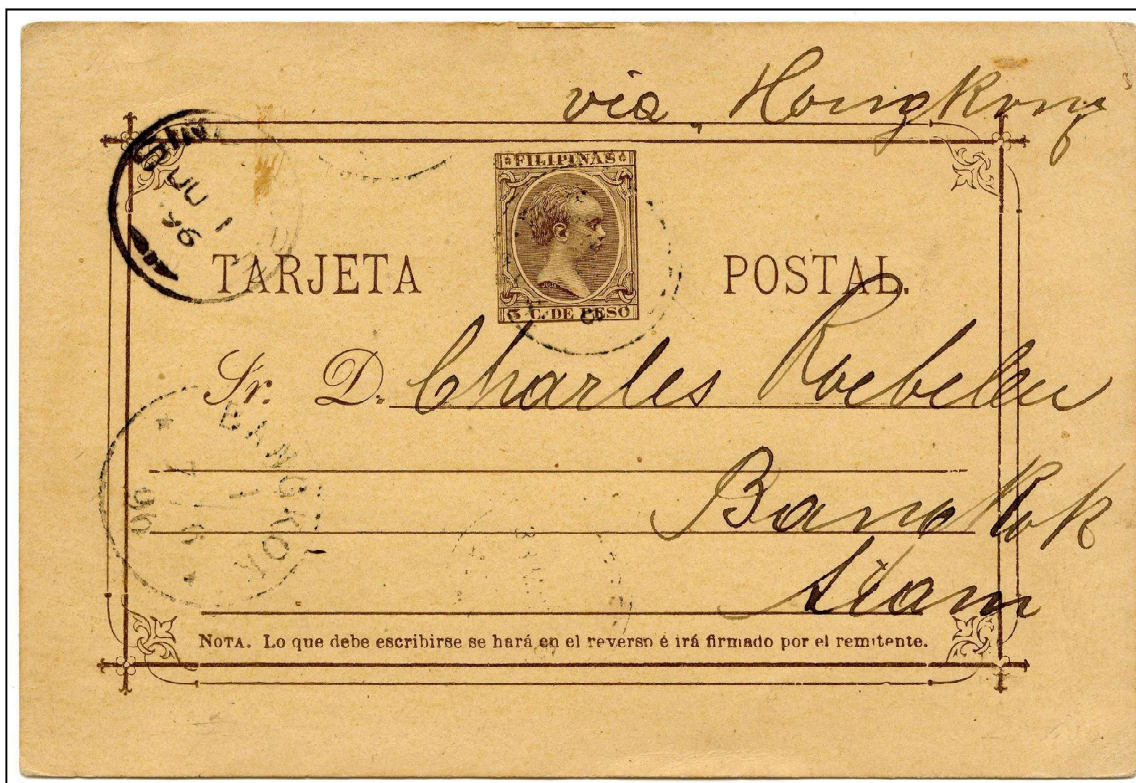 via, Hongkong
FILIPINAS
TARJETA POSTAL.
3 C. DE PESO
Sr. D. Charles Roebelen
BANGKOK
7
96
Bangkok
Siam
NOTA. Lo que debe escribirse se hará en el reverso é irá firmado por el remitente.